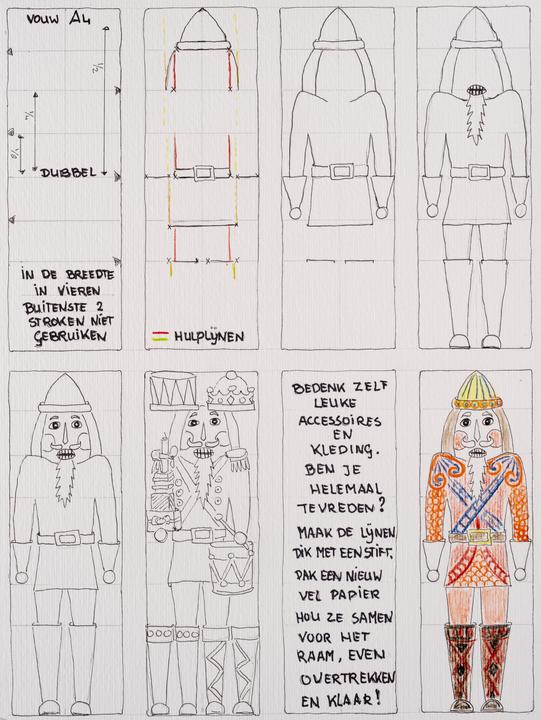 VOUW A4
1/2
1/4
1/8
DUBBEL
IN DE BREEDTE
IN VIEREN
BUITENSTE 2
STROKEN NIET
GEBRUIKEN
HULPLIJNEN
BEDENK ZELF
LEUKE
ACCESSOIRES
EN
KLEDING.
BEN JE
HELEMAAL
TEVREDEN?
MAAK DE LIJNEN
DIK MET EEN STIFT.
PAK EEN NIEUW
VEL PAPIER
HOU ZE SAMEN
VOOR HET
RAAM, EVEN
OVERTREKKEN
EN KLAAR!